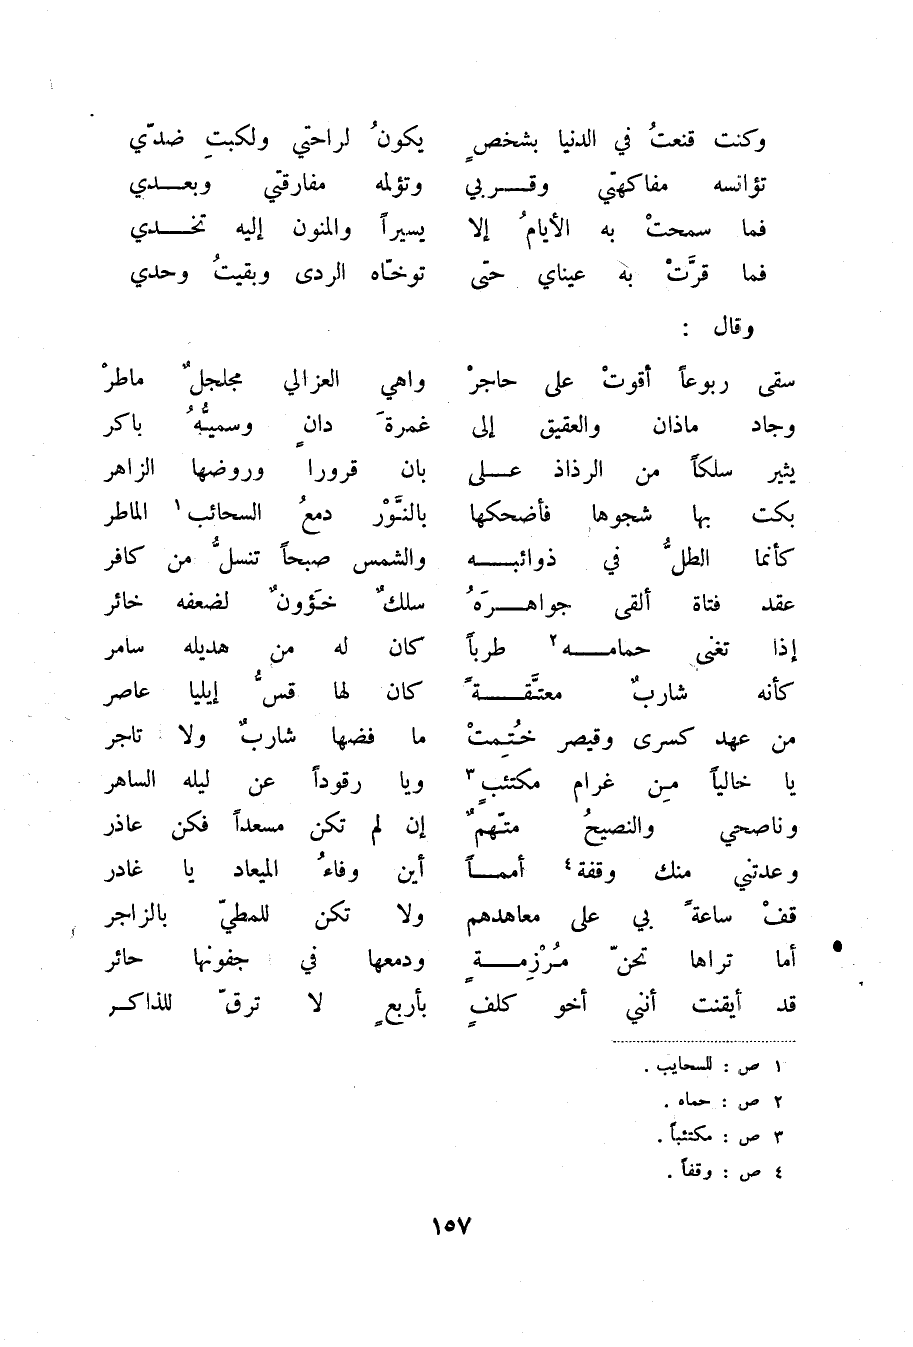 وكنت قنعتُ في الدنيا بشخصٍ يكونُ لراحتي ولكبتِ ضدّي
تؤانسه مفاكهتي وقربي وتؤلمه مفارقتي وبعدي
فما سمحتْ به الأيامُ إلا يسيراً والمنون إليه تخدي
فما قرَّتْ به عيناي حتى توخّاه الردى وبقيتُ وحدي
وقال :
سقى ربوعاً أقوتْ على حاجرْ واهي العزالي مجلجلٌ ماطرْ
وجاد ماذان والعقيق إلى غمرةَ دانٍ وسميُّهُ باكر
يثير سلكاً من الرذاذ على بان قرورا وروضها الزاهر
بكت بها شجوها فأضحكها بالنَّوْر دمعُ السحائب١ الماطر
كأنما الطلُّ في ذوائبه والشمس صبحاً تنسلُّ من كافر
عقد فتاة ألقى جواهرَهُ سلكٌ خَؤونٌ لضعفه خائر
إذا تغنى حمامه٢ طرباً كان له من هديله سامر
كأنه شاربٌ معتَّقةً كان لها قسُّ إيليا عاصر
من عهد كسرى وقيصر خُتِمتْ ما فضها شاربٌ ولا تاجر
يا خالياً مِن غرام مكتئبٍ٣ ويا رقوداً عن ليله الساهر
وناصحي والنصيحُ متّهمٌ إن لم تكن مسعداً فكن عاذر
وعدتني منك وقفة٤ أمماً أين وفاءُ الميعاد يا غادر
قفْ ساعةً بي على معاهدهم ولا تكن للمطيّ بالزاجر
أما تراها تحنّ مُرْزِمةٍ ودمعها في جفونها حائر
قد أيقنت أنني أخو كلفٍ بأربعٍ لا ترقّ للذاكر
١ ص : للسحايب .
٢ ص : حماه .
٣ ص : مكتئباً .
٤ ص : وقفاً .
١٥٧